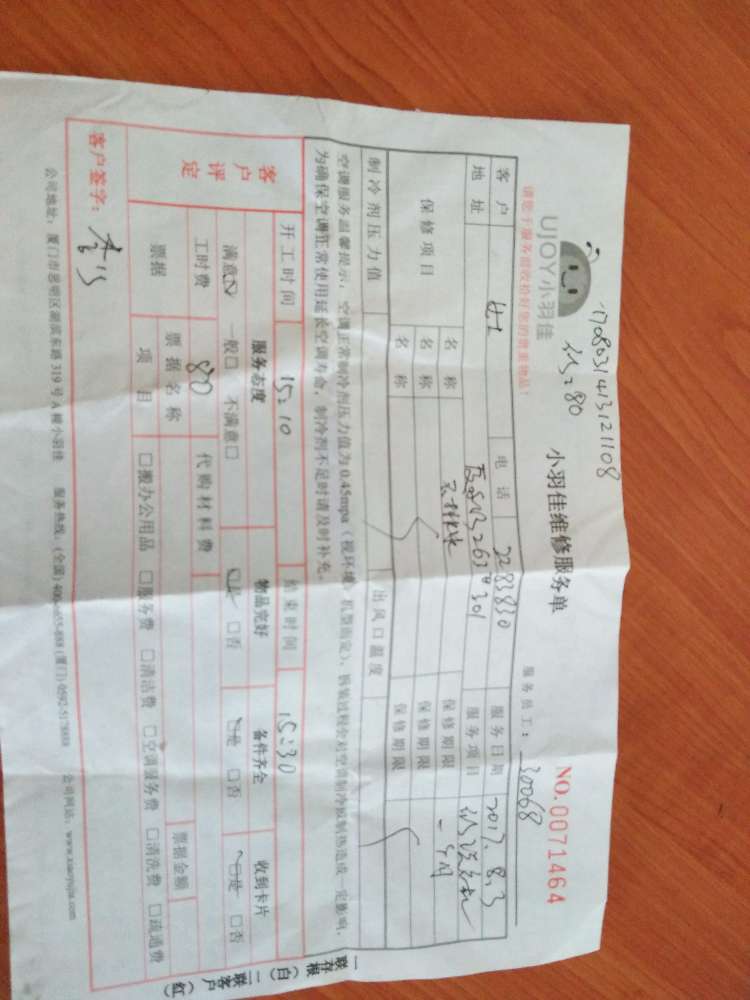 1708031413121108
280
UJOY小羽佳
小羽佳维修服务单
NO.0071464
请您于服务前收拾好您的贵重物品！
服务员工：30068
客户
电话
2283830
服务日期
2017.8.3
地址
263#301
服务项目
保修项目
名称
保修期限
一个月
名称
保修期限
名称
保修期限
制冷剂压力值
出风口温度
空调服务温馨提示：空调正常制冷剂压力值为0.45mpa（视环境、机型而定），拆装过程会对空调制冷或制热造成一定影响，
为确保空调正常使用延长空调寿命，制冷剂不足时请及时补充。
开工时间
15:10
结束时间
15:30
客户评定
服务态度
物品完好
备件齐全
收到卡片
满意☑ 一般□ 不满意□
☑是 □否
☑是 □否
☑是 □否
工时费
80
代购材料费
票据
票据名称
票据金额
项目
□搬办公用品 □服务费 □清洁费 □空调服务费 □清洗费 □疏通费
客户签字：
公司地址：厦门市思明区湖滨东路319号A幢小羽佳 服务热线：(全国)400-655-888 (厦门)0592-5178888 公司网站：www.xiaoyujia.com
一联存根（白）二联客户（红）